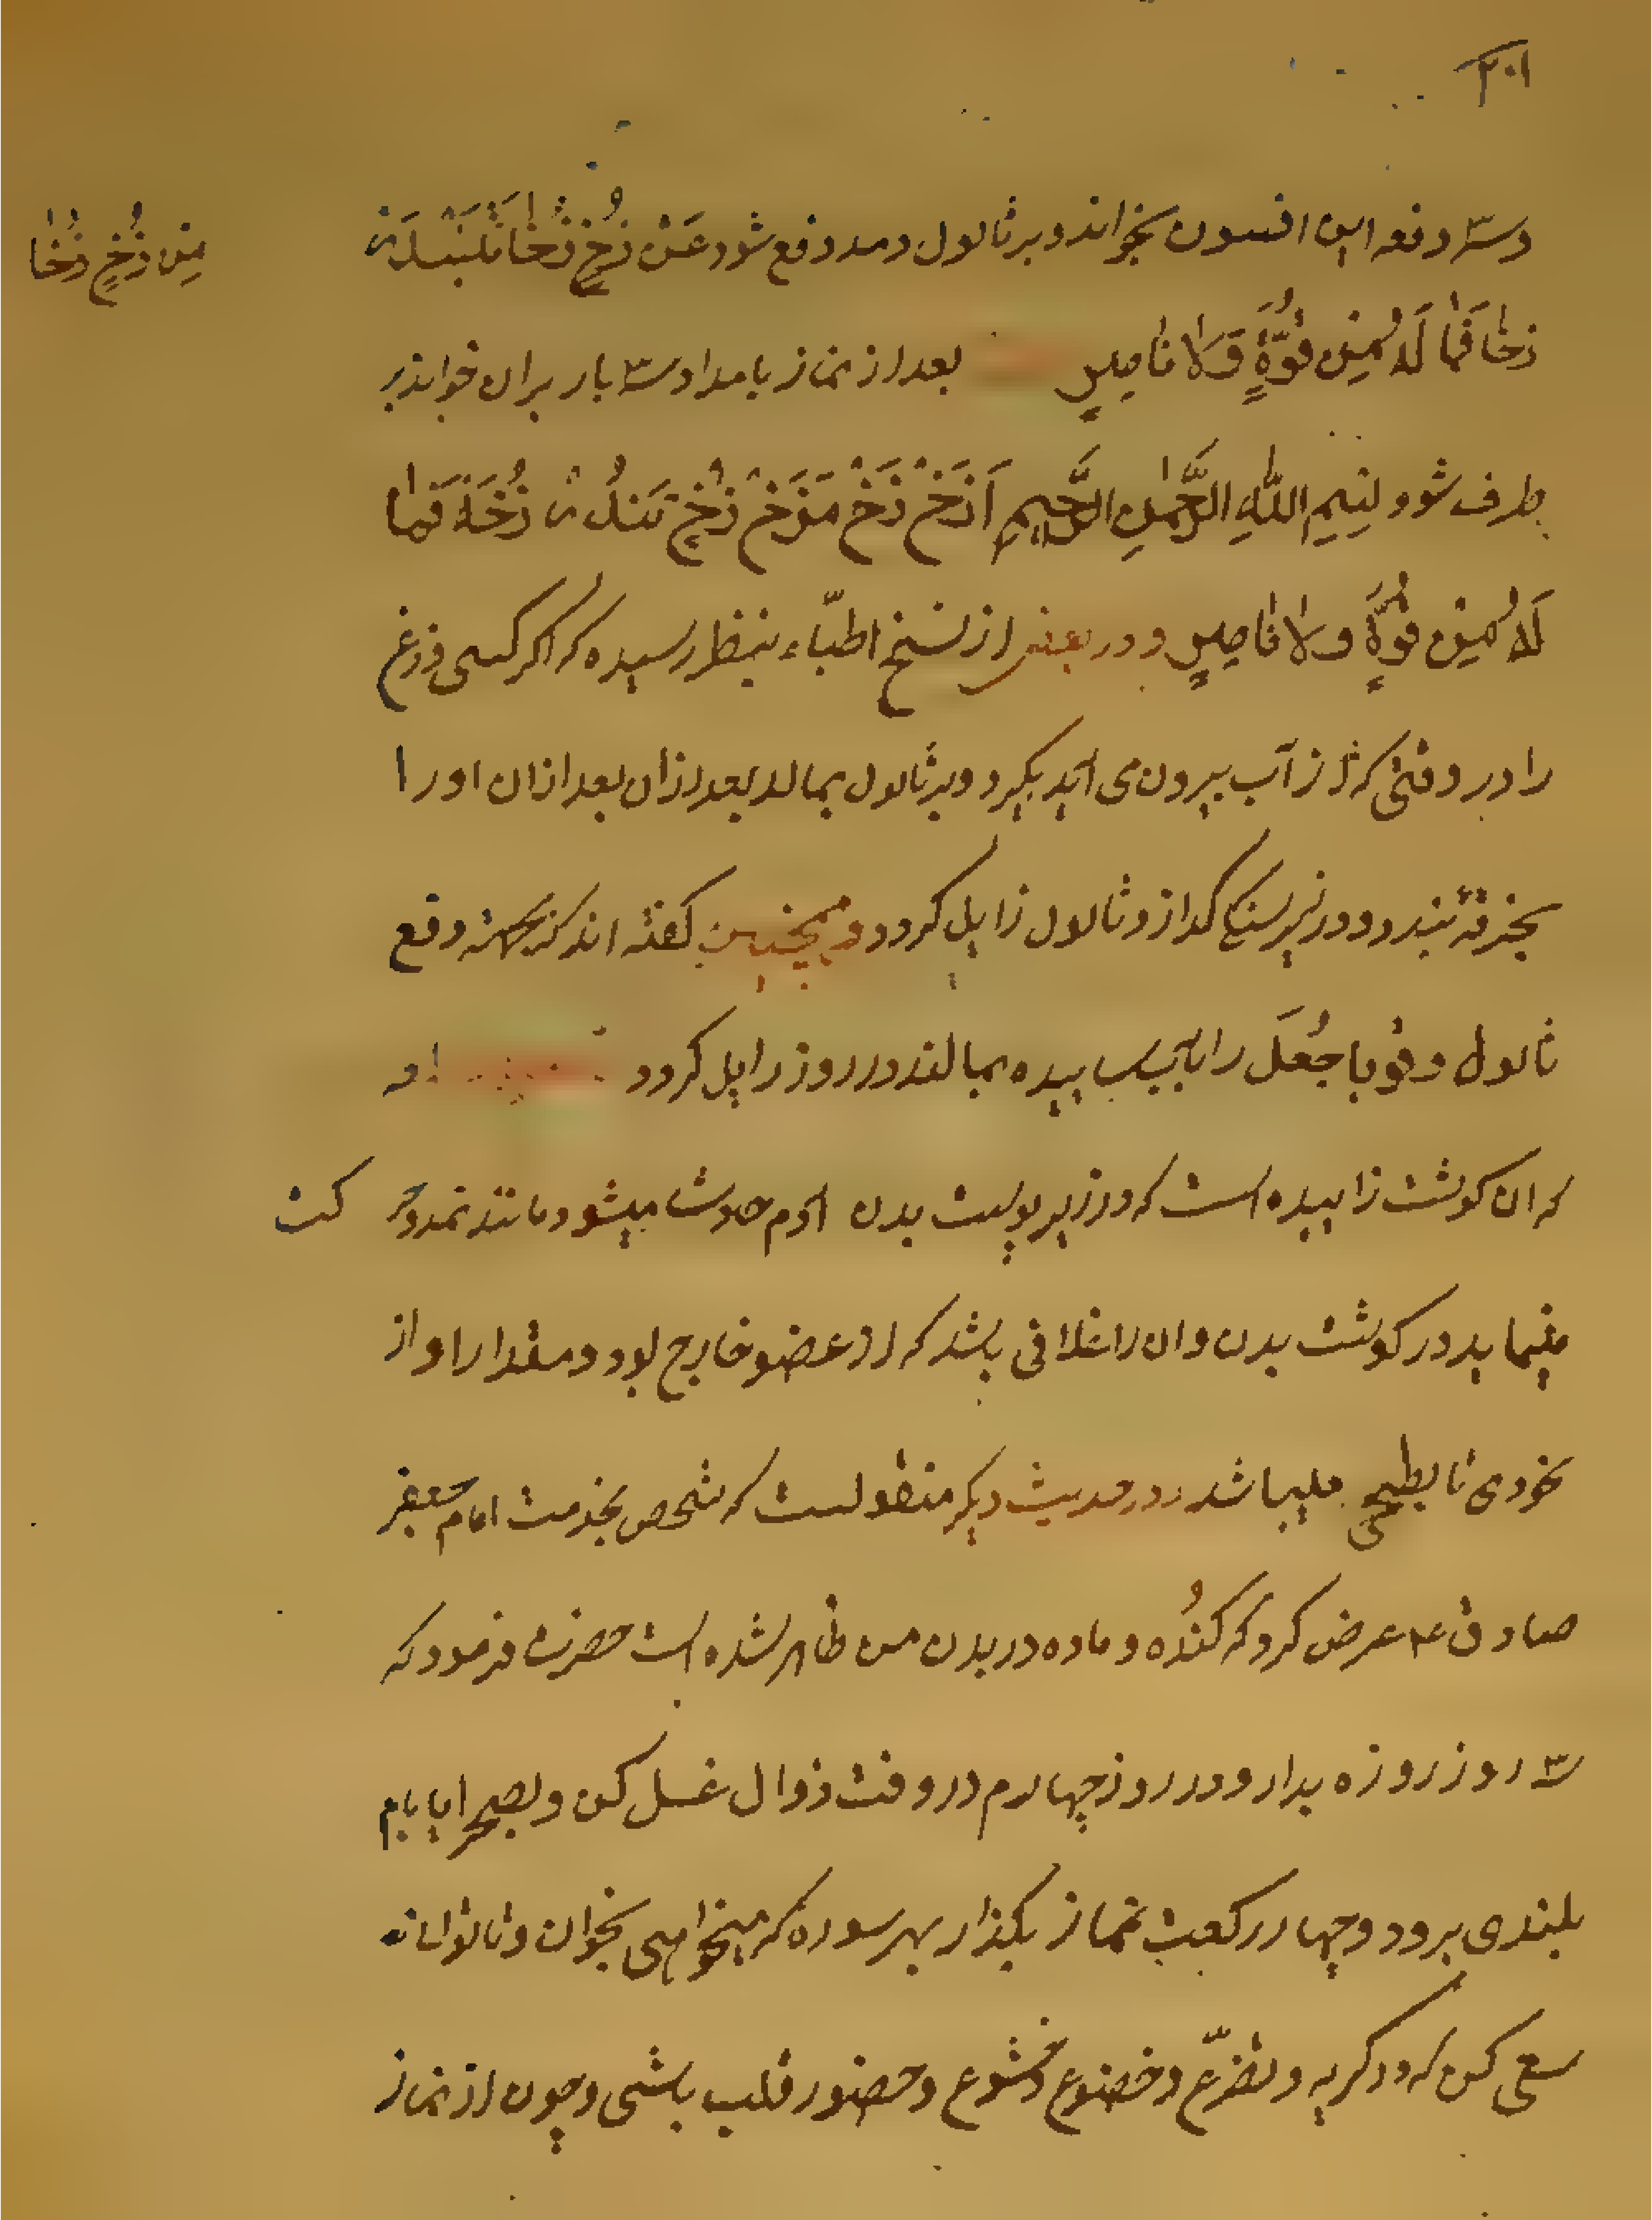 ۲۰۱
و سه دفعه این افسون بخواند و بر ثالول دمد دفع شود عَنْ زُخٍ زُخٰا
مِنْ زُخٍ زُخٰا
زخٰا فَمٰا لَهُ مِنْ قُوَّةٍ وَلٰا نٰاصِرٍ بعد از نماز بامداد سه بار بران خواند بر
طرف شود بِسْمِ اللّٰهِ الرَّحْمٰنِ الرَّحِيمِ زُخَهُ فَمٰا
لَهُ مِنْ قُوَّةٍ وَلٰا نٰاصِرٍ و در بعضی از نسخ اطبّاء بنظر رسیده که اگر کسی وزغ
را در وقتی که از آب بیرون می آید بگیرد و بر ثالول بمالد بعد ازان بعد ازان او را
بخرقه بندد و در زیر سنگ گذارد ثالول زایل گردد و همچنین گفته اند که بجهته دفع
ثالول و قوبا جُعَل را بمالند در روز زایل گردد
که ان گوشت زاییده است که در زیر پوست بدن آدم حادث میشود مانند
مینماید در گوشت بدن و ان را غلافی باشد که از عضو خارج بود و مقدار او از
نخودی تا بطیخی میباشد و در حدیث دیگر منقولست که شخصی بخدمت امام جعفر
صادق ع عرض کرد که کنُده و ماده در بدن من ظاهر شده است حضرت فرمود که
سه روز روزه بدار و در روز چهارم در وقت زوال غسل کن و بصحرا یا بام
بلندی برود و چهار رکعت نماز بگذار بهر سوره که میخواهی بخوان و تا توانی
سعی کن که در گریه و تضرّع و خضوع و خشوع و حضور قلب باشی و چون از نماز